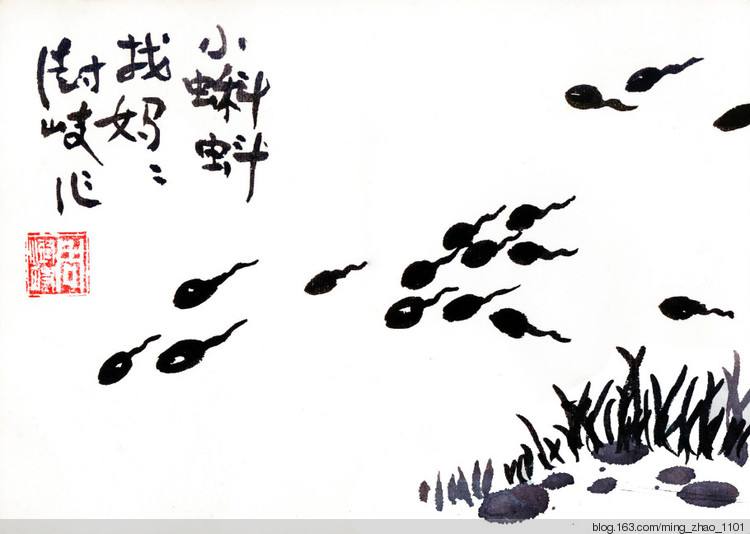 小蝌蚪
找妈〻
封岐作
blog.163.com/ming_zhao_1101